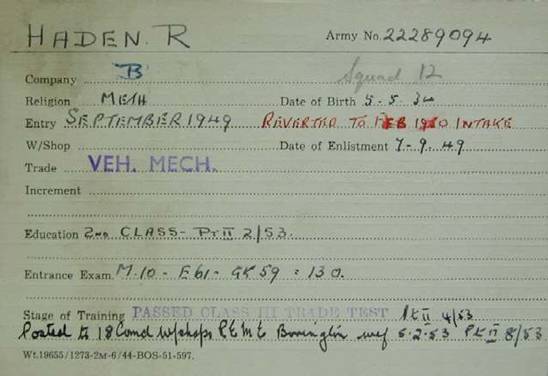 HADEN. R Army No. 22289094
Company B Squad 12
Religion METH Date of Birth 5-5-34
Entry SEPTEMBER 1949 REVERTED TO FEB 1950 INTAKE
W/Shop Date of Enlistment 7-9-49
Trade VEH. MECH.
Increment
Education 2ND CLASS - Pt II 2/53.
Entrance Exam. M.10 - E61 - GK 59 = 130.
Stage of Training PASSED CLASS III TRADE TEST Pt II 4/53
Posted to 18 Comd W/shops REME Bovington wef 5-2-53 Pt II 8/53
Wt.19655/1273-2M-6/44-BOS-51-597.